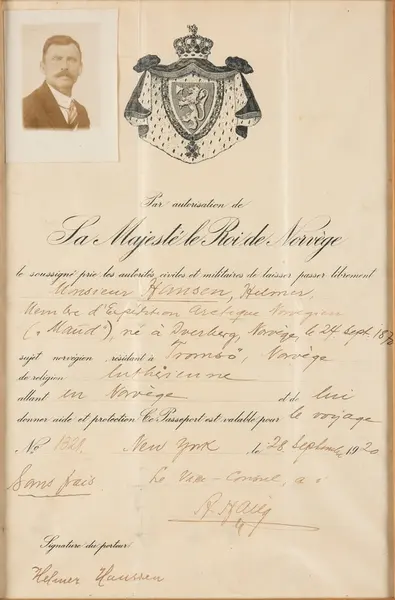 Par autorisation de
Sa Majesté le Roi de Norvège
le soussigné prie les autorités civiles et militaires de laisser passer librement
Monsieur Hansen, Helmer,
Membre d'Expédition Arctique Norvegien
("Maud"), né à Dverberg, Norvège, le 24 Sept. 1870
sujet norvégien résidant à Tromsö, Norvège
de religion luthérienne
allant en Norvège et de lui
donner aide et protection. Ce Passeport est valable pour le voyage
No 1328. New York le 28 Septembre 1920
Sans frais Le Vice-Consul, a i
R. Haug
Signature du porteur
Helmer Hanssen